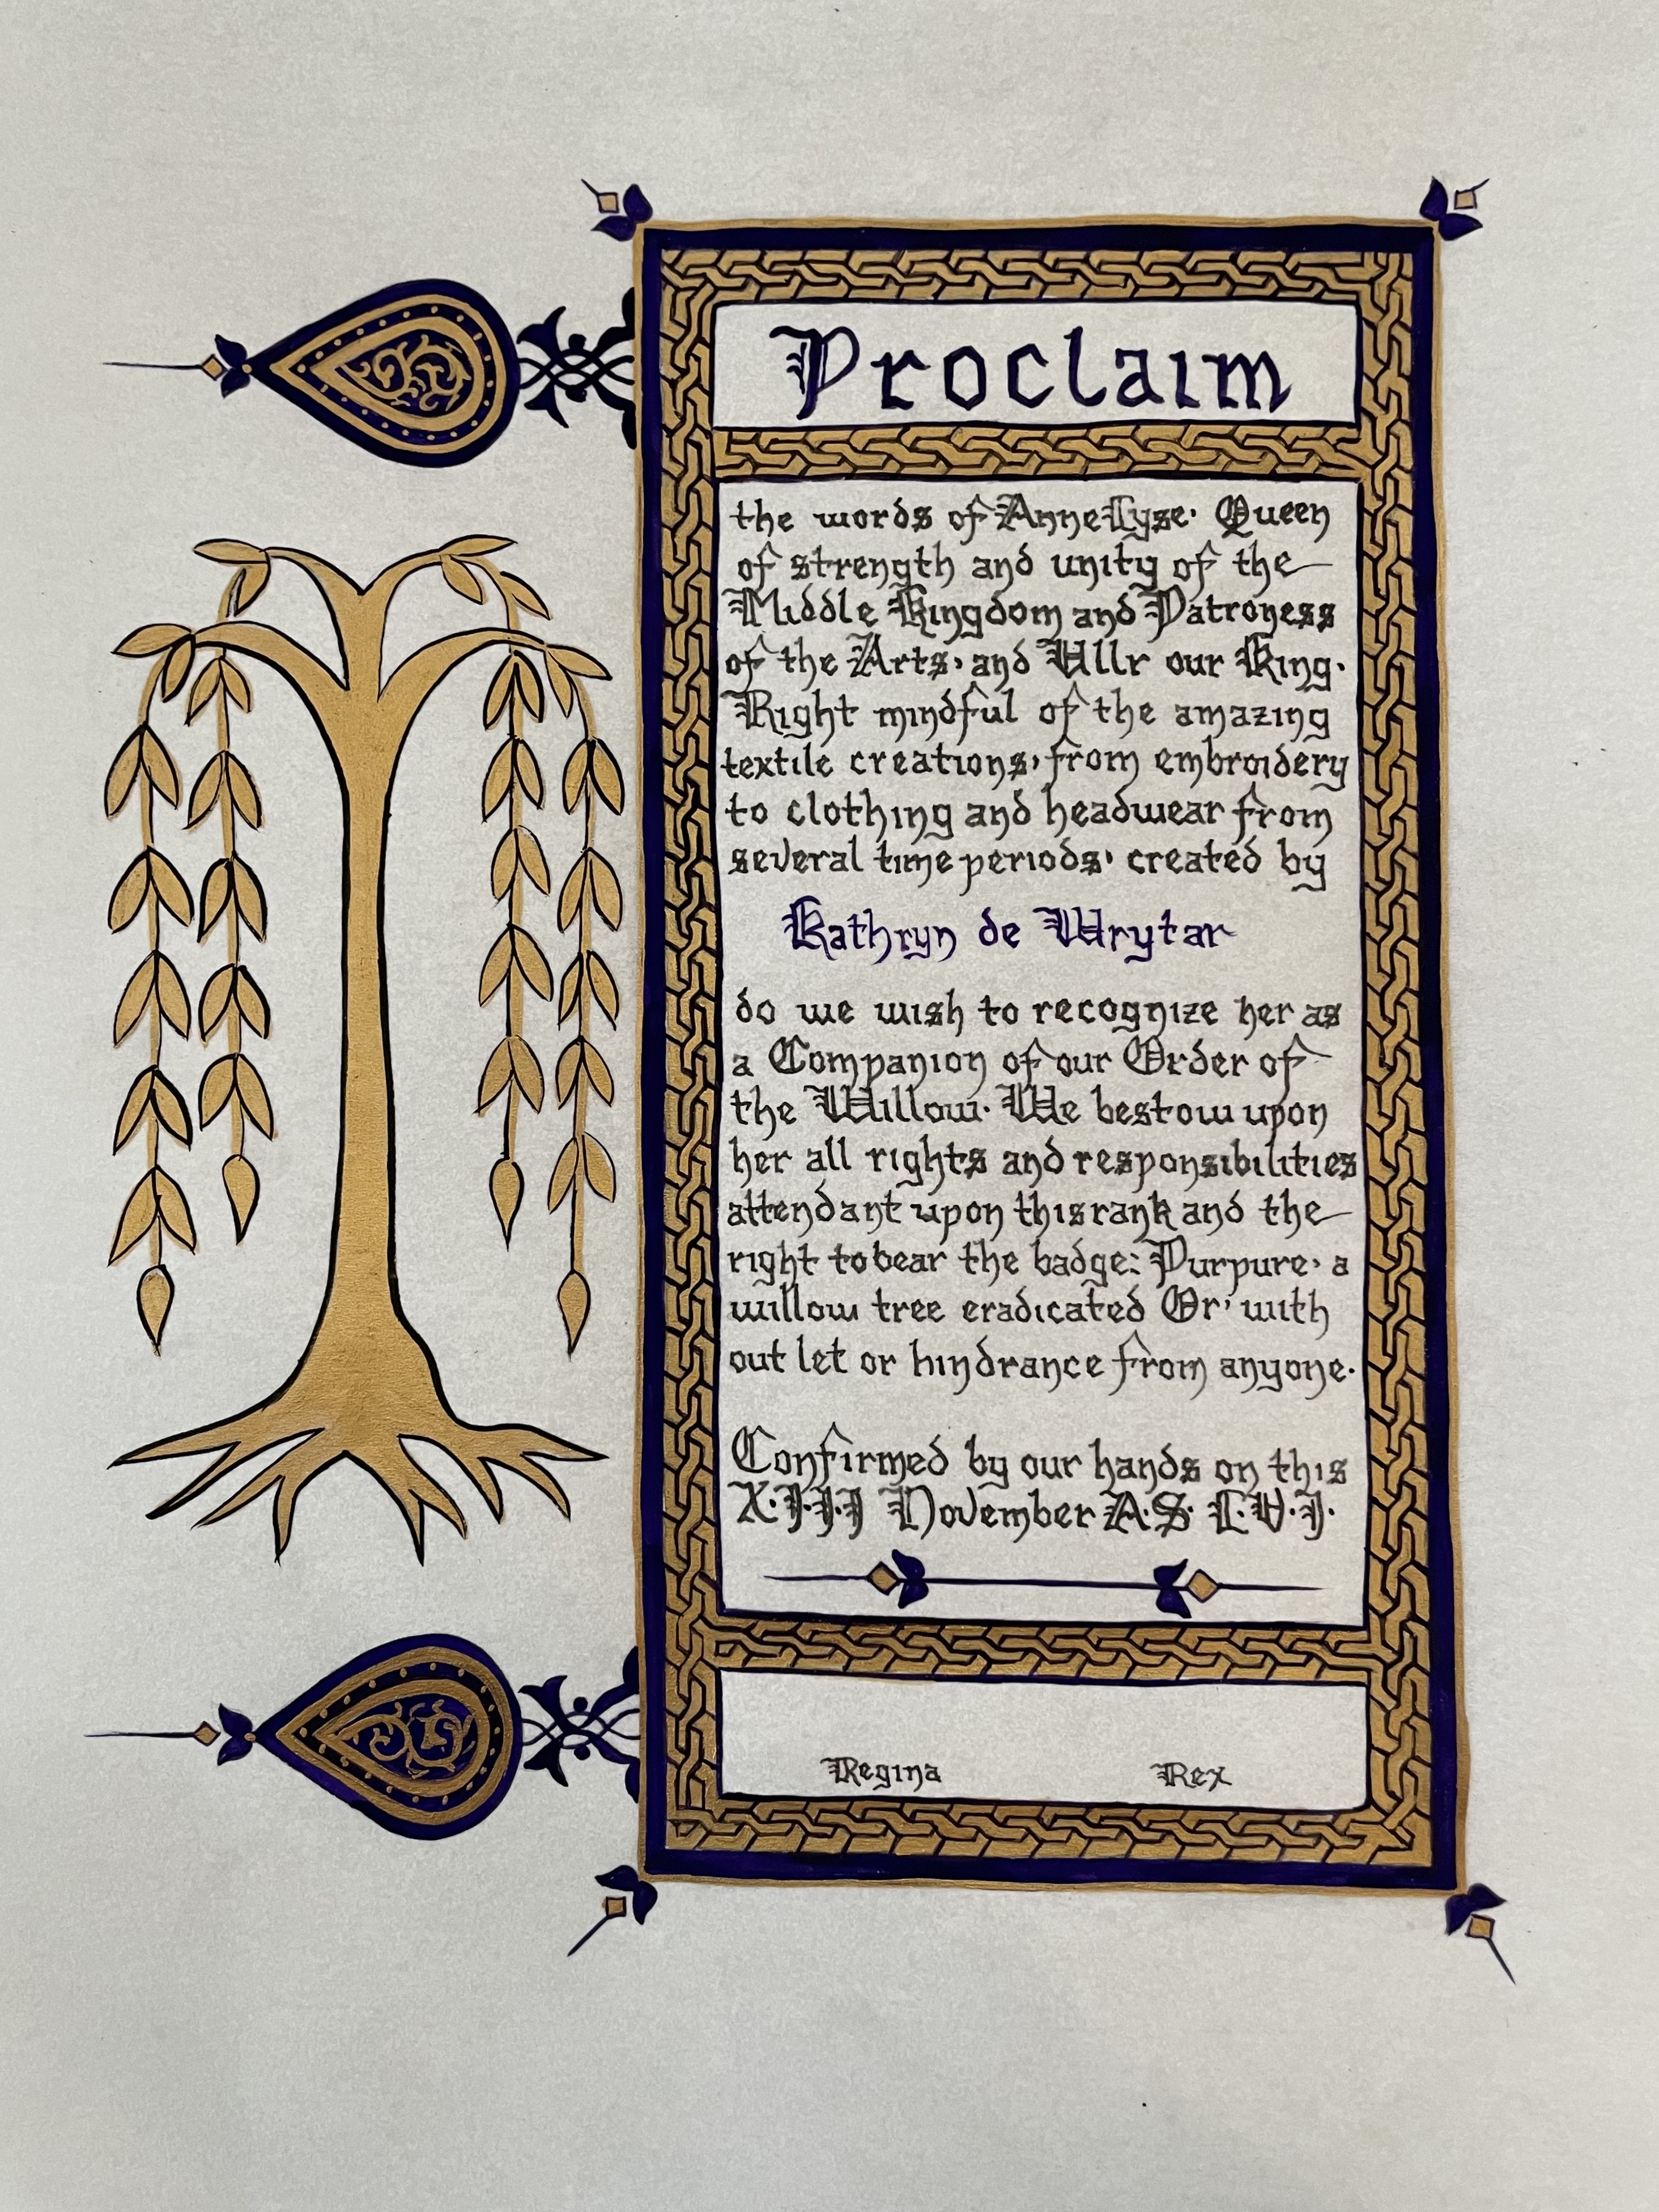 Proclaim
the words of AnneLyse. Queen
of strength and unity of the
Middle Kingdom and Patroness
of the Arts, and Ullr our King.
Right mindful of the amazing
textile creations, from embroidery
to clothing and headwear from
several time periods, created by
Kathryn de Wrytar
do we wish to recognize her as
a Companion of our Order of
the Willow. We bestow upon
her all rights and responsibilities
attendant upon this rank and the
right to bear the badge: Purpure, a
willow tree eradicated Or, with
out let or hindrance from anyone.
Confirmed by our hands on this
X.I.I.I November A.S. L.V.I.
Regina Rex